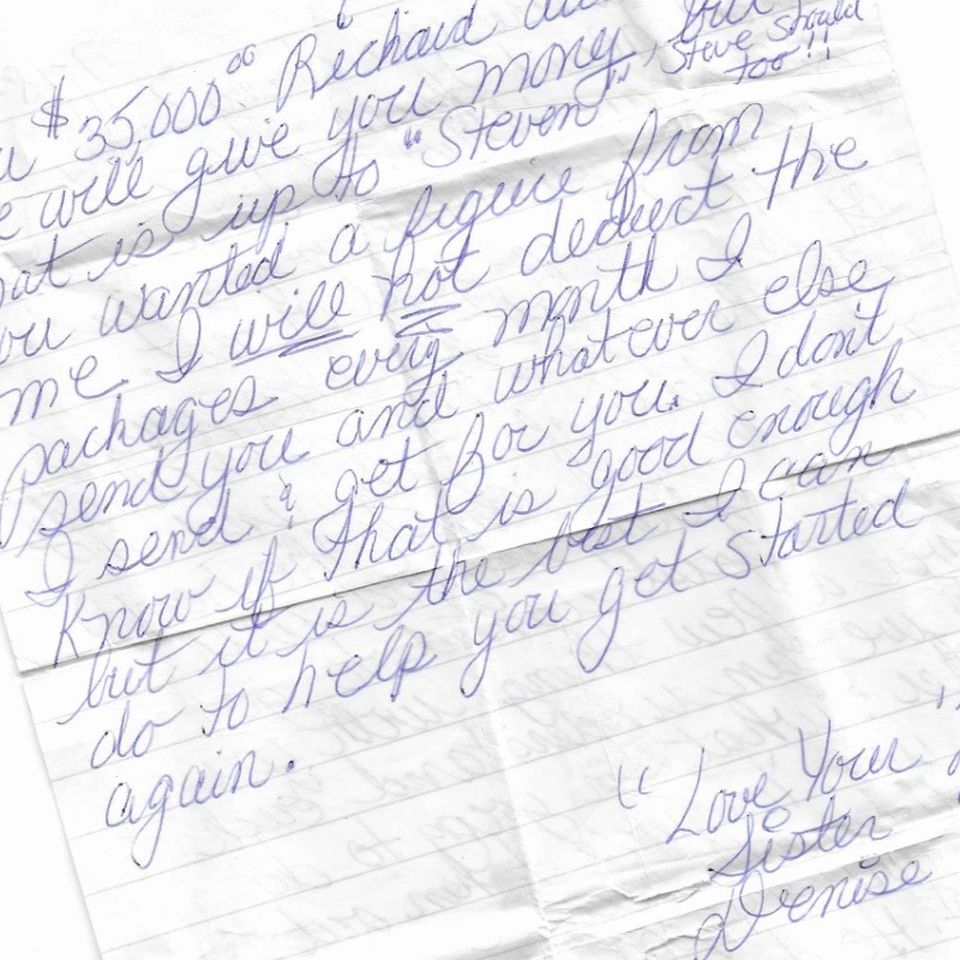 $35,000.00 Richard
will give you money, but Steve should too!!
is up to "Steven"
you wanted a figure from
me I will not deduct the
packages every month I
send you and whatever else
I send & get for you. I don't
know if that is good enough
but it is the best I can
do to help you get started
again.
"Love Your
Sister
Denise